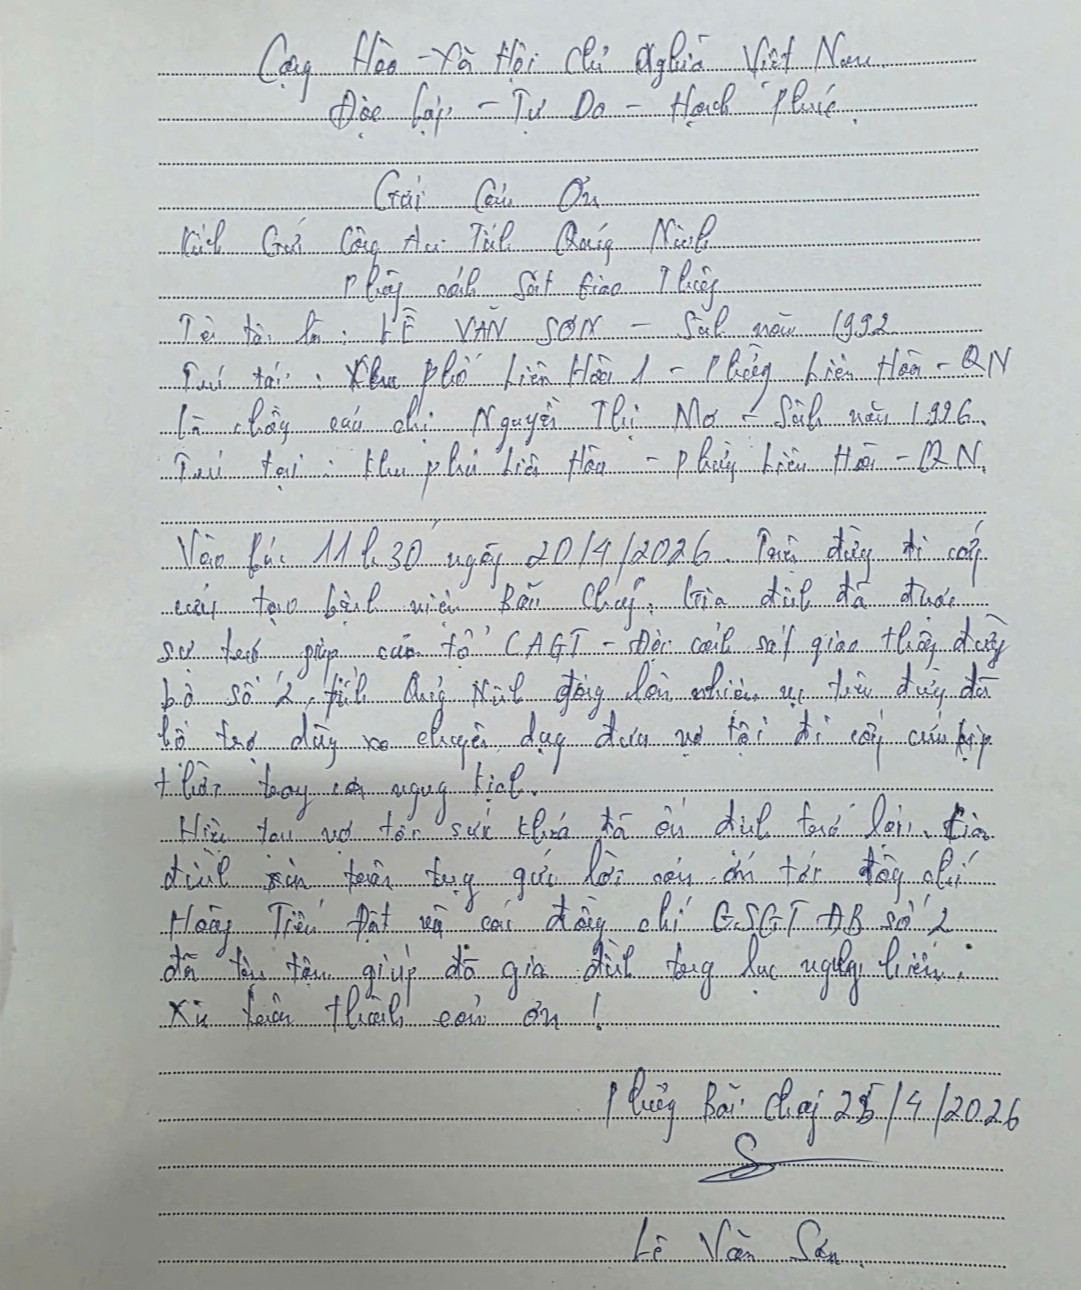 Cộng Hòa - Xã Hội Chủ Nghĩa Việt Nam
Độc lập - Tự Do - Hạnh Phúc
Cảm Ơn
Kính Gửi Công An Tỉnh Quảng Ninh
Phòng cảnh Sát Giao Thông
Tên tôi là: LÊ VĂN SƠN - Sinh năm 1992
Trú tại: Khu phố Liên Hòa 1 - Phường Liên Hòa - QN
Là chồng của chị Nguyễn Thị Mơ - Sinh năm 1996.
Trú tại: Khu phố Liên Hòa - Phường Liên Hòa - QN.
Vào lúc 11h30 ngày 20/4/2026. Trên đường đi cấp
cứu tại bệnh viện Bãi Cháy, Gia đình đã được
sự trợ giúp của tổ CAGT - Đội cảnh sát giao thông đường
bộ số 2, tỉnh Quảng Ninh đang làm nhiệm vụ trên đường đã
hỗ trợ dùng xe chuyên dụng đưa vợ tôi đi cấp cứu kịp
thời trong cơn nguy kịch.
Hiện tại vợ tôi sức khỏe đã ổn định trở lại. Gia
đình xin trân trọng gửi lời cảm ơn tới đồng chí
Hoàng Tiến Đạt và các đồng chí CSGT ĐB số 2
đã tận tâm giúp đỡ gia đình trong lúc nguy hiểm.
Xin chân thành cảm ơn!
Phường Bãi Cháy 25/4/2026
Lê Văn Sơn